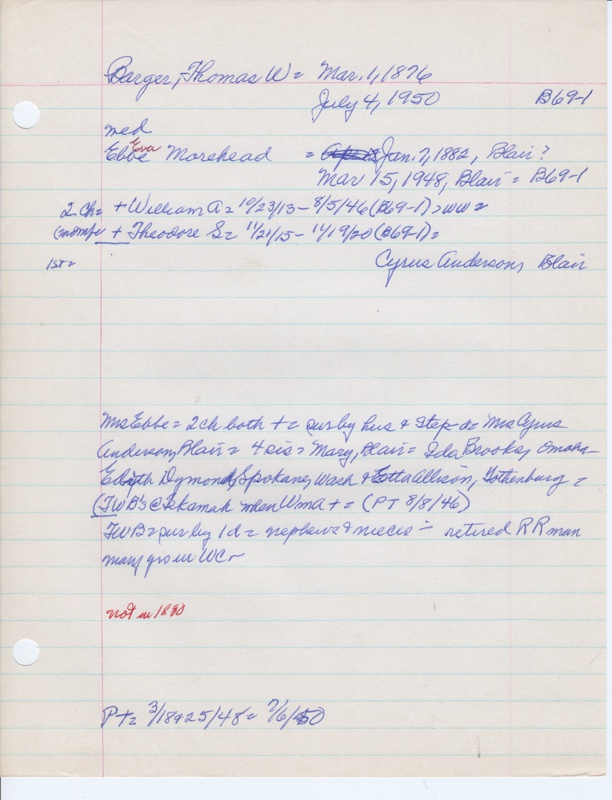 Barger, Thomas W = Mar. 1, 1876
July 4, 1950 B69-1
med
Eva
Ebbe Morehead = Jan. 7, 1882, Blair?
Mar 15, 1948, Blair = B69-1
2 Ch = + William A = 10/23/13 - 8/5/46 (B69-1) > WW 2
+ Theodore S = 11/21/15 - 11/19/20 (B69-1) =
1st = Cyrus Anderson, Blair
Mrs Ebbe = 2 ch both + = sur by hus & step-d = Mrs Cyrus
Anderson, Blair = 4 sis = Mary, Blair = Ida Brooks, Omaha =
Edyth Dymond, Spokane, Wash & Etta Allison, Gothenburg =
(TWB's @ Tekamah when Wm A + = (PT 8/8/46)
TWB = sur by 1 d = nephews & nieces = retired RR man
many yrs in WC -
not in 1880
PT = 3/18 & 25/48 = 7/6/50